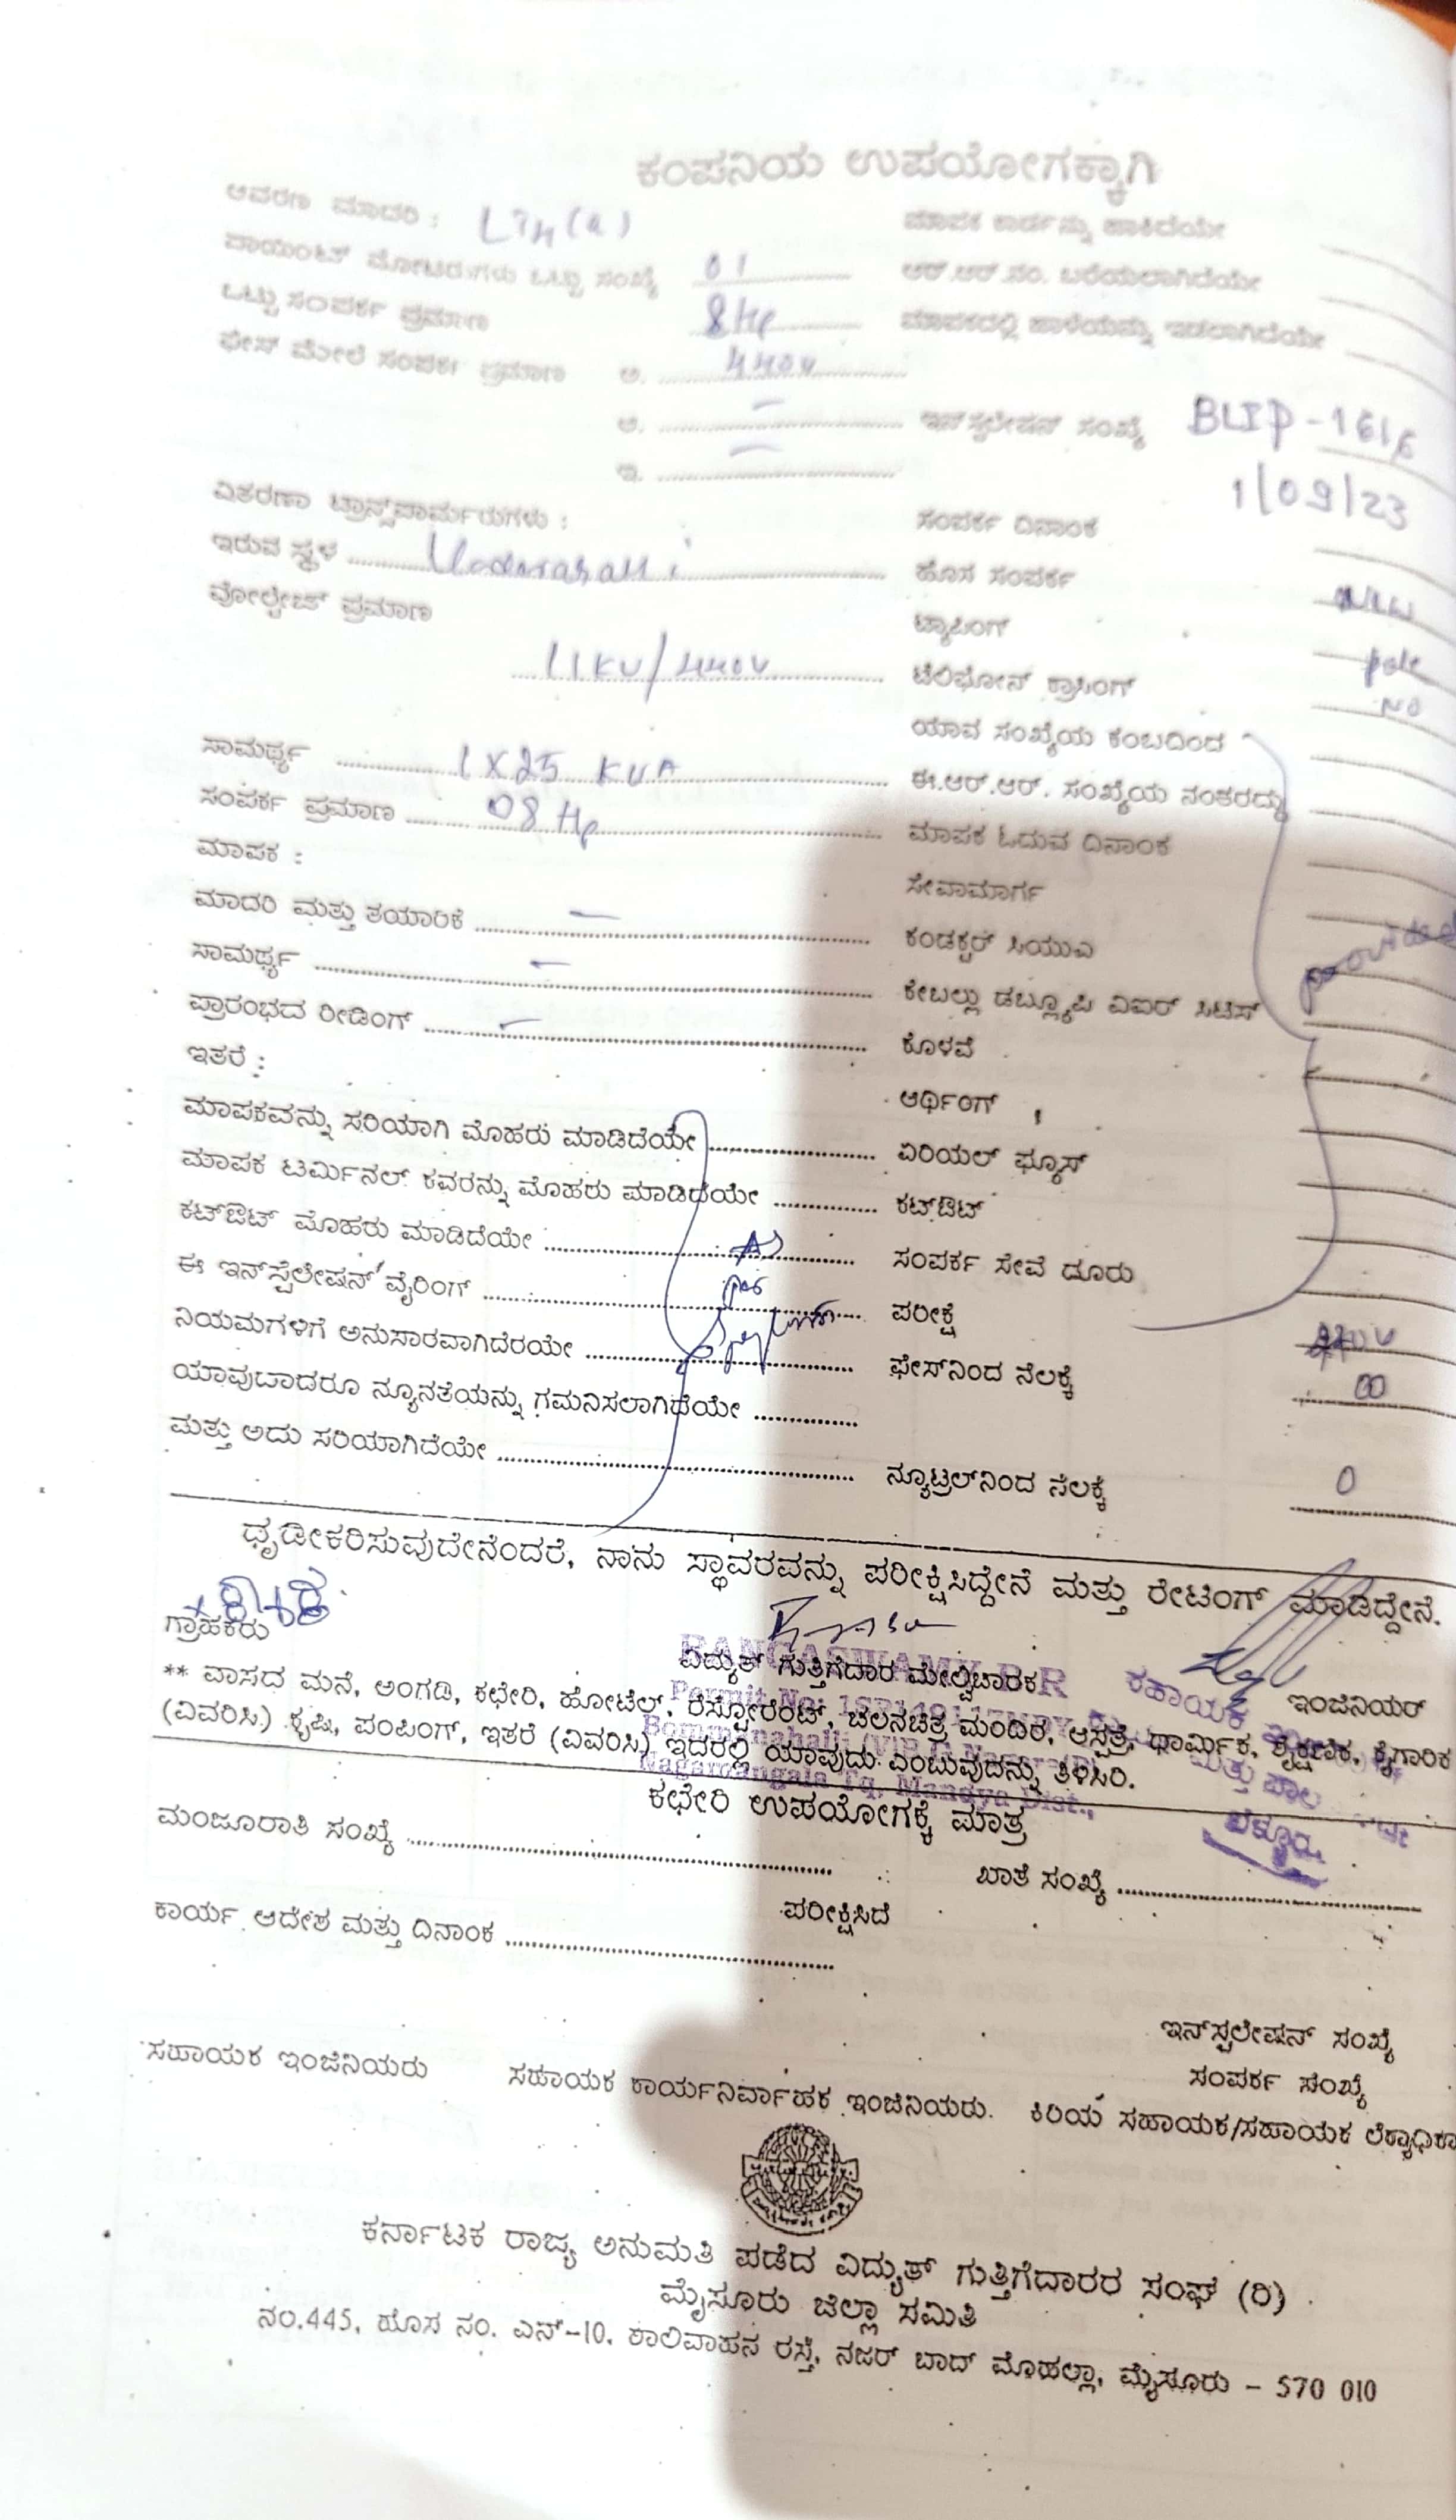 ಕಂಪನಿಯ ಉಪಯೋಗಕ್ಕಾಗಿ
ಆವರಣ ಮಾದರಿ : LT4(a) ಮಾಪಕ ಕಾರ್ಡನ್ನು ಹಾಕಿದೆಯೇ
ಪಾಯಿಂಟ್ ಮೋಟರುಗಳು ಒಟ್ಟು ಸಂಖ್ಯೆ 01 ಆರ್.ಆರ್.ನಂ. ಬರೆಯಲಾಗಿದೆಯೇ
ಒಟ್ಟು ಸಂಪರ್ಕ ಪ್ರಮಾಣ 8 Hp ಮಾಪಕದಲ್ಲಿ ಹಾಳೆಯನ್ನು ಇಡಲಾಗಿದೆಯೇ
ಫೇಸ್ ಮೇಲೆ ಸಂಪರ್ಕ ಪ್ರಮಾಣ ಅ. 440V
ಆ. – ಇನ್‌ಸ್ಟಲೇಷನ್ ಸಂಖ್ಯೆ BLIP-1616
ಇ. –
ವಿತರಣಾ ಟ್ರಾನ್ಸ್‌ಫಾರ್ಮರುಗಳು : ಸಂಪರ್ಕ ದಿನಾಂಕ 1/09/23
ಇರುವ ಸ್ಥಳ ಹೊಸ ಸಂಪರ್ಕ New
ವೋಲ್ಟೇಜ್ ಪ್ರಮಾಣ ಟ್ಯಾಪಿಂಗ್ pole
11KV/440V ಟೆಲಿಫೋನ್ ಕ್ರಾಸಿಂಗ್ NO
ಯಾವ ಸಂಖ್ಯೆಯ ಕಂಬದಿಂದ
ಸಾಮರ್ಥ್ಯ 1X25 KVA ಈ.ಆರ್.ಆರ್. ಸಂಖ್ಯೆಯ ನಂತರದ್ದು
ಸಂಪರ್ಕ ಪ್ರಮಾಣ 08 Hp ಮಾಪಕ ಓದುವ ದಿನಾಂಕ
ಮಾಪಕ : ಸೇವಾಮಾರ್ಗ
ಮಾದರಿ ಮತ್ತು ತಯಾರಿಕೆ – ಕಂಡಕ್ಟರ್ ಸಿಯುಎ
ಸಾಮರ್ಥ್ಯ – ಕೇಬಲ್ಲು ಡಬ್ಲ್ಯೂಪಿ ವಿಐಆರ್ ಸಿಟಿಸ್ provided
ಪ್ರಾರಂಭದ ರೀಡಿಂಗ್ – ಕೊಳವೆ
ಇತರೆ : ಆರ್ಥಿಂಗ್
ಮಾಪಕವನ್ನು ಸರಿಯಾಗಿ ಮೊಹರು ಮಾಡಿದೆಯೇ ಏರಿಯಲ್ ಫ್ಯೂಸ್
ಮಾಪಕ ಟರ್ಮಿನಲ್ ಕವರನ್ನು ಮೊಹರು ಮಾಡಿದೆಯೇ ಕಟ್‌ಔಟ್
ಕಟ್‌ಔಟ್ ಮೊಹರು ಮಾಡಿದೆಯೇ ಸಂಪರ್ಕ ಸೇವೆ ದೂರು
ಈ ಇನ್‌ಸ್ಟೆಲೇಷನ್ ವೈರಿಂಗ್ ಪರೀಕ್ಷೆ
ನಿಯಮಗಳಿಗೆ ಅನುಸಾರವಾಗಿದೆರಯೇ ಫೇಸ್‌ನಿಂದ ನೆಲಕ್ಕೆ
ಯಾವುದಾದರೂ ನ್ಯೂನತೆಯನ್ನು ಗಮನಿಸಲಾಗಿದೆಯೇ
ಮತ್ತು ಅದು ಸರಿಯಾಗಿದೆಯೇ ನ್ಯೂಟ್ರಲ್‌ನಿಂದ ನೆಲಕ್ಕೆ 0
ಧೃಡೀಕರಿಸುವುದೇನೆಂದರೆ, ನಾನು ಸ್ಥಾವರವನ್ನು ಪರೀಕ್ಷಿಸಿದ್ದೇನೆ ಮತ್ತು ರೇಟಿಂಗ್ ಮಾಡಿದ್ದೇನೆ.
ಗ್ರಾಹಕರು ವಿದ್ಯುತ್ ಗುತ್ತಿಗೆದಾರ ಮೇಲ್ವಿಚಾರಕ ಇಂಜಿನಿಯರ್
RANGASWAMY B R
Permit No:
Nagamangala Tq, Mandya Dist.,
ಸಹಾಯಕ
ಮತ್ತು ಪಾಲನೆ
ಬೆಳ್ಳೂರು
** ವಾಸದ ಮನೆ, ಅಂಗಡಿ, ಕಛೇರಿ, ಹೋಟೆಲ್, ರೆಸ್ಟೋರೆಂಟ್, ಚಲನಚಿತ್ರ ಮಂದಿರ, ಆಸ್ಪತ್ರೆ, ಧಾರ್ಮಿಕ, ಶೈಕ್ಷಣಿಕ, ಕೈಗಾರಿಕ
(ವಿವರಿಸಿ) ಕೃಷಿ, ಪಂಪಿಂಗ್, ಇತರೆ (ವಿವರಿಸಿ) ಇದರಲ್ಲಿ ಯಾವುದು ಎಂಬುವುದನ್ನು ತಿಳಿಸಿರಿ.
ಕಛೇರಿ ಉಪಯೋಗಕ್ಕೆ ಮಾತ್ರ
ಮಂಜೂರಾತಿ ಸಂಖ್ಯೆ ಖಾತೆ ಸಂಖ್ಯೆ
ಪರೀಕ್ಷಿಸಿದೆ
ಕಾರ್ಯ ಆದೇಶ ಮತ್ತು ದಿನಾಂಕ
ಇನ್‌ಸ್ಟಲೇಷನ್ ಸಂಖ್ಯೆ
ಸಂಪರ್ಕ ಸಂಖ್ಯೆ
ಸಹಾಯಕ ಇಂಜಿನಿಯರು ಸಹಾಯಕ ಕಾರ್ಯನಿರ್ವಾಹಕ ಇಂಜಿನಿಯರು. ಕಿರಿಯ ಸಹಾಯಕ/ಸಹಾಯಕ ಲೆಕ್ಕಾಧಿಕಾ
ಕರ್ನಾಟಕ ರಾಜ್ಯ ಅನುಮತಿ ಪಡೆದ ವಿದ್ಯುತ್ ಗುತ್ತಿಗೆದಾರರ ಸಂಘ (ರಿ)
ಮೈಸೂರು ಜಿಲ್ಲಾ ಸಮಿತಿ
ನಂ.445, ಹೊಸ ನಂ. ಎನ್-10, ಶಾಲಿವಾಹನ ರಸ್ತೆ, ನಜರ್ ಬಾದ್ ಮೊಹಲ್ಲಾ, ಮೈಸೂರು - 570 010